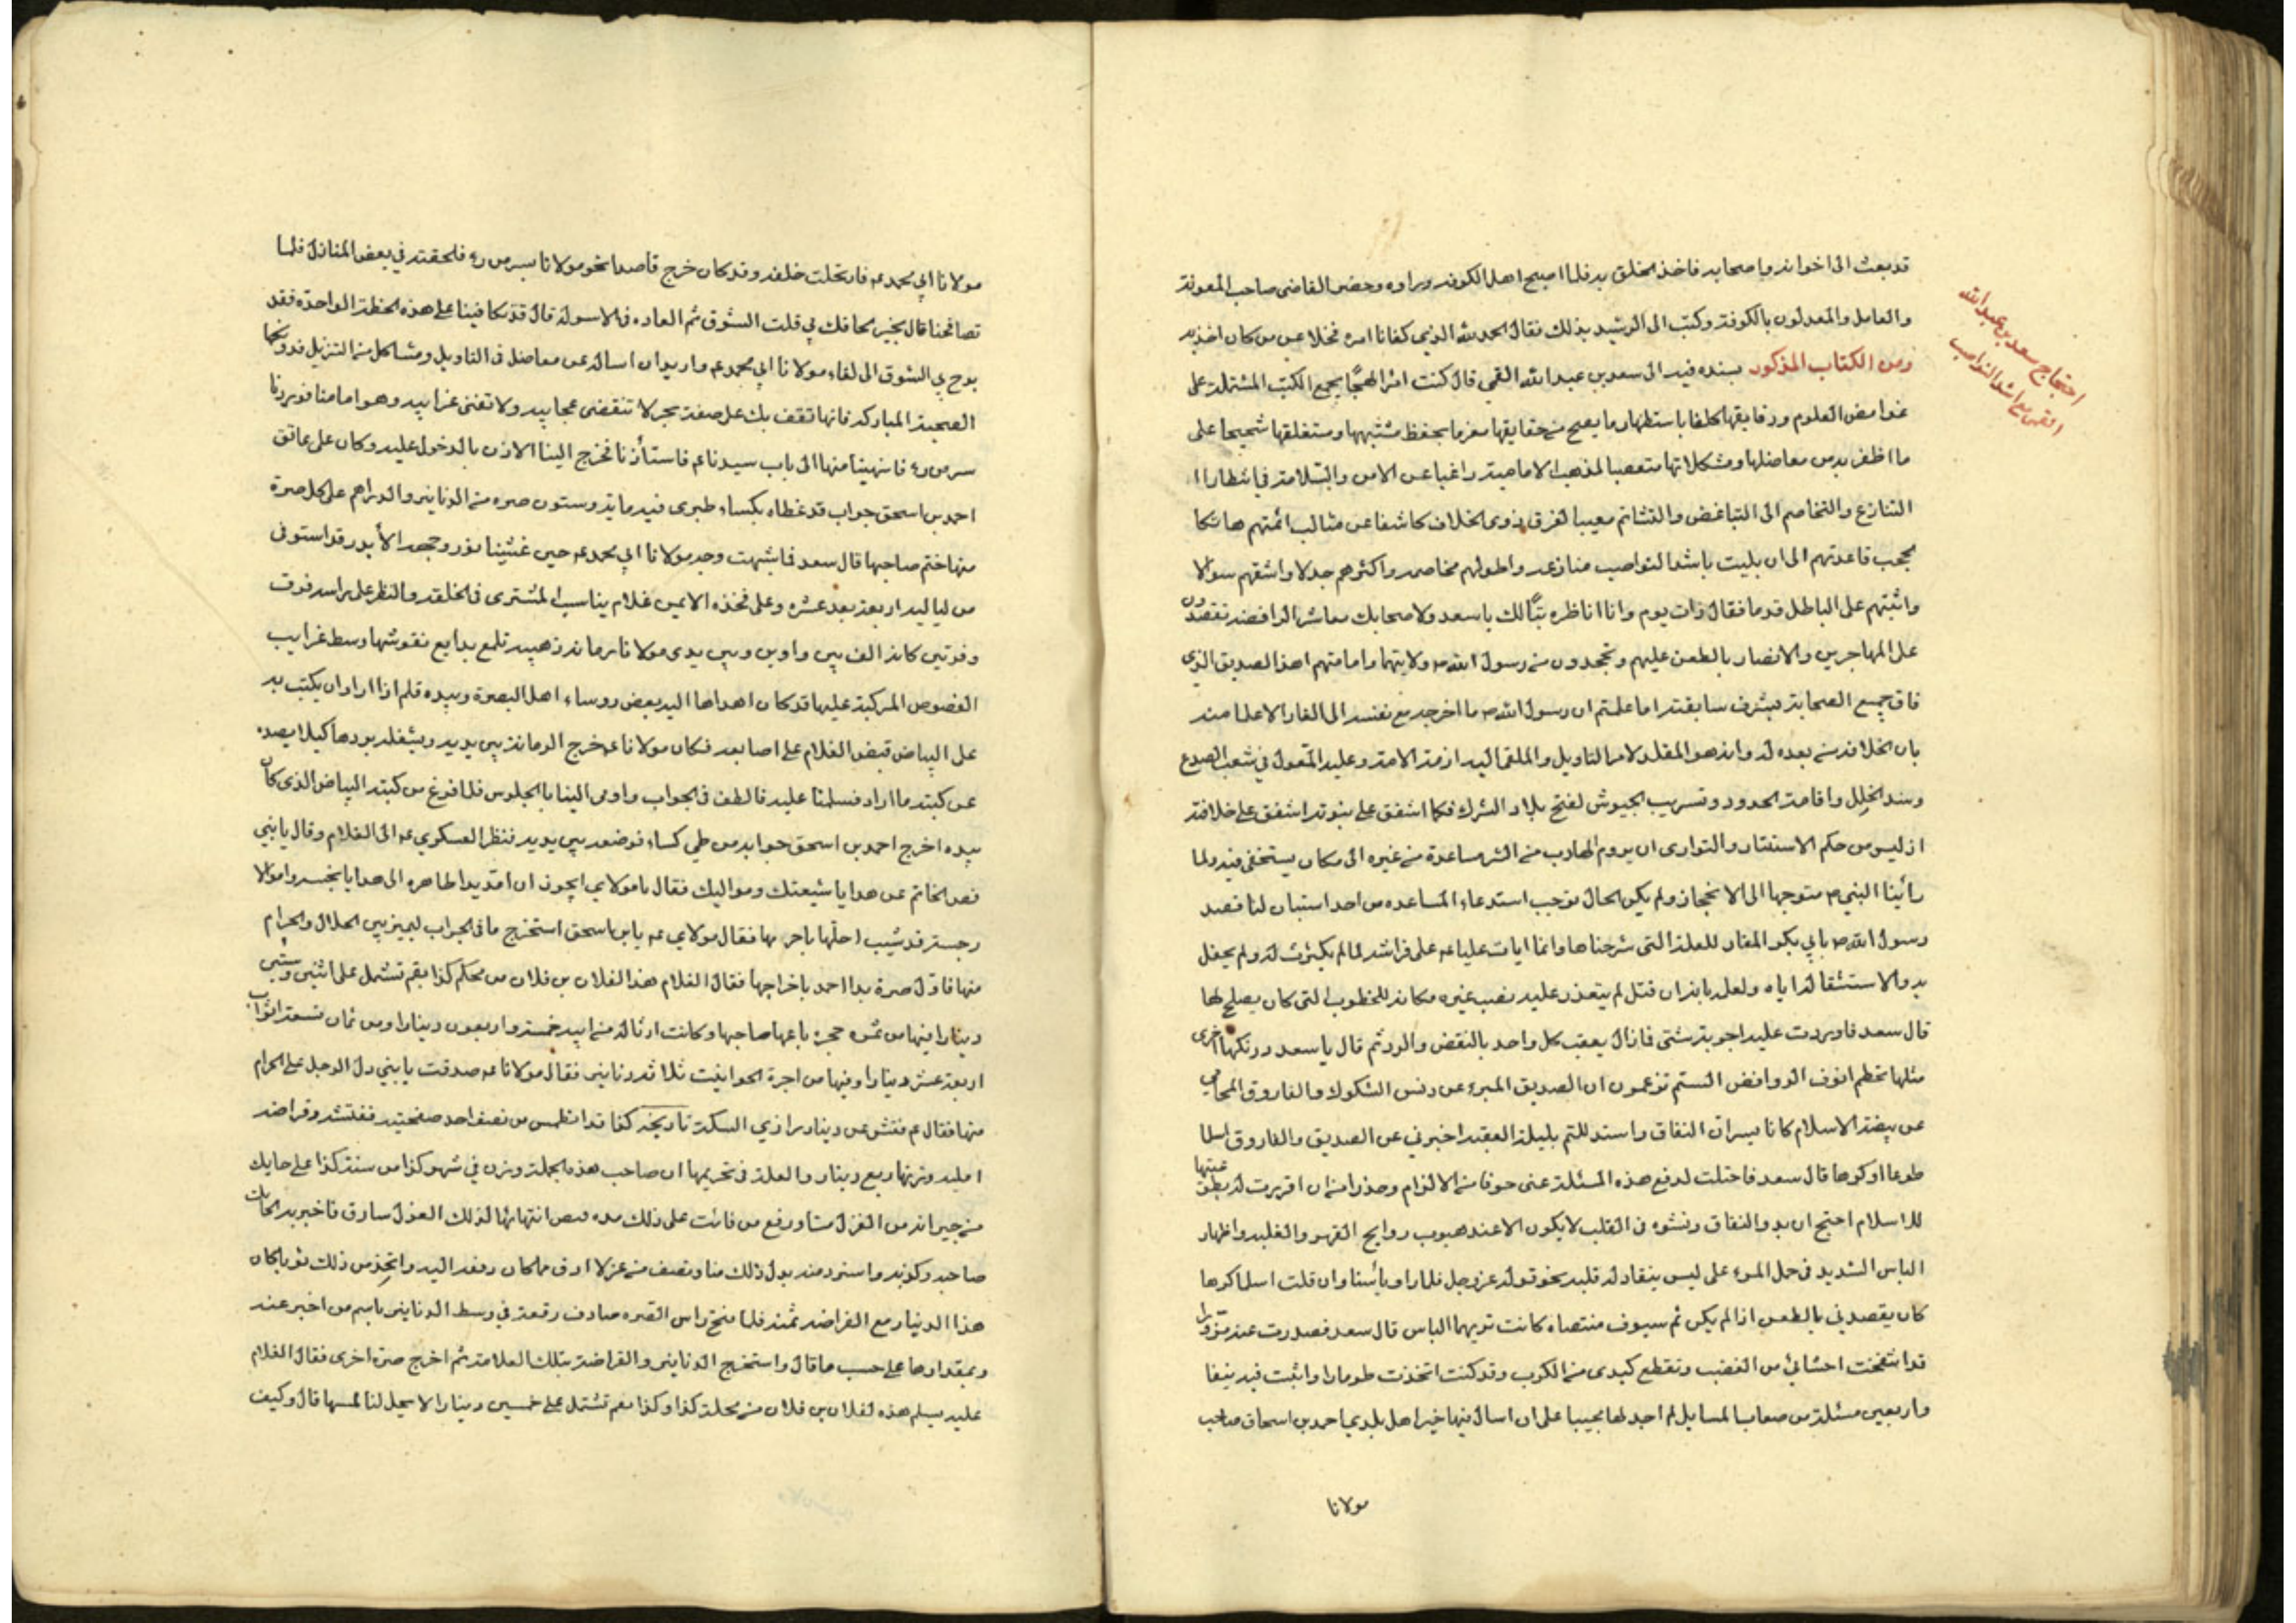 قد بعث الى اخوانه واصحابه فاخذ الخلق به فلما اصبح اهل الكوفة وراوه وحضر القاضى صاحب المعونة
والعامل والمعدلون بالكوفة وكتب الى الرشيد بذلك فقال الحمد لله الذي كفانا امره فخلا عن من كان اخذ به
ومن الكتاب المذكور بسنده فيه الى سعد بن عبد الله القمي قال كنت امرا لهجا بجمع الكتب المشتملة على
غوامض العلوم ودقايقها كلفا باستظهار ما يصح من حقايقها مغرما بحفظ مشتبهها ومستغلقها شحيحا على
ما اظفر به من معاضلها ومشكلاتها متعصبا لمذهب الامامية راغبا عن الامن والسلامة في انتظار ا
التنازع والتخاصم الى التباغض والتشاتم معيبا لفرق ذوى الخلاف كاشفا عن مثالب ائمتهم هاتكا
لحجب قاعدتهم الى ان بليت باشد النواصب منازعة واطولهم مخاصمه واكثرهم جدلا واشقهم سوالا
واثبتهم على الباطل قدما فقال ذات يوم وانا اناظره تبًا لك يا سعد ولاصحابك معاشر الرافضة تقصدون
على المهاجرين والانصار بالطعن عليهم وتجحدون من رسول الله ص ولايتهما وامامتهم اهذا الصديق الذي
فاق جميع الصحابة بشرف سابقته اما علمتم ان رسول الله ص ما اخرجه مع نفسه الى الغار الا علما منه
بان الخلافة من بعده له وانه هو المقلد لامر التاويل والملقى اليه ازمة الامة وعليه المعول في شعب الصدع
وسد الخلل واقامة الحدود وتسريب الجيوش لفتح بلاد الشرك فكما اشفق على نبوته اشفق على خلافته
اذ ليس من حكم الاستتار والتوارى ان يروم الهارب من الشر مساعدة من غيره الى مكان يستخفى فيه ولما
رأينا النبي ص متوجها الى الانحجاز ولم يكن الحال توجب استدعاء المساعده من احد استبان لنا قصد
رسول الله ص بابي بكر الغار للعلة التى شرحناها وانما ابات عليا عه على فراشه لما لم يكترث له ولم يحفل
به والاستثقاله اياه ولعلمه بانه ان قتل لم يتعذر عليه نصب غيره مكانه للخطوب التى كان يصلح لها
قال سعد فاوردت عليه اجوبة شتى فما زال يعقب كل واحد بالنقض والرد ثم قال يا سعد دونكها اخرى
مثلها تخطم انوف الروافض الستم تزعمون ان الصديق المبرء عن دنس الشكوك والفاروق المحامي
عن بيضة الاسلام كانا يسران النفاق واستدللتم بليلة العقبه اخبرني عن الصديق والفاروق اسلما
طوعا او كرها قال سعد فاحتلت لدفع هذه المسئلة عنى خوفا من الالزام وحذرا من ان اقررت له بطوعيتها
للاسلام احتج ان بدو النفاق ونشوه فى القلب لا يكون الا عند هبوب روايح القهر والغلبه واظهار
الباس الشديد فى حمل المرء على ليس ينقاد له قلبه نحو قوله عز وجل فلما راوا بأسنا وان قلت اسلما كرها
كان يقصدني بالطعن اذ لم يكن ثم سيوف منتضاه كانت تريهما الباس قال سعد فصدرت عنه مزورا
قد انتفخت احشائي من الغضب وتقطع كبدى من الكرب وقد كنت اتخذت طومارا واثبت فيه نيفا
واربعين مسئلة من صعاب المسايل لم اجد لها مجيبا على ان اسال فيها خير اهل بلدي احمد بن اسحاق صاحب
مولانا
احتجاج سعد بن عبد الله
القمى مع اشد النواصب
مولانا ابي محمد عه فارتحلت خلفه وقد كان خرج قاصدا نحو مولانا بسر من رء فلحقته في بعض المنازل فلما
تصافحنا قال بخير لحاقك بي قلت الشوق ثم العاده فى الاسوله قال قد تكافينا على هذه الخطة الواحدة فقد
برح بي الشوق الى لقاء مولانا ابي محمد عه واريد ان اساله عن معاضل فى التاويل ومشاكل من التنزيل فدونكها
الصحبة المباركه فانها تقف بك على ضفة بحر لا تنقضى عجايبه ولا تفنى غرايبه وهو امامنا فوردنا
سر من رء فانتهينا منها الى باب سيدنا عم فاستأذنا فخرج الينا الاذن بالدخول عليه وكان على عاتق
احمد بن اسحق جراب قد غطاه بكساء طبرى فيه ماية وستون صره من الدنانير والدراهم على كل صرة
منها ختم صاحبها قال سعد فما شبهت وجه مولانا ابي محمد عه حين غشينا نور وجهه الا ببدر قد استوفى
من لياليه اربعة بعد عشره وعلى فخذه الايمن غلام يناسب المشترى فى الخلقة والنظر على راسه فرق
وفرتين كانه الف بين واوين وبين يدى مولانا رمانه ذهبيه تلمع بدايع نقوشها وسط غرايب
الفصوص المركبة عليها قد كان اهداها اليه بعض روساء اهل البصرة وبيده قلم اذا اراد ان يكتب به
على البياض قبض الغلام على اصابعه فكان مولانا عه خرج الرمانة بين يديه ويشغله بردها كيلا يصده
عن كتبه ما اراد فسلمنا عليه فالطف فى الجواب واومى الينا بالجلوس فلما فرغ من كتبه البياض الذى كان
بيده اخرج احمد بن اسحق جرابه من طي كساء فوضعه بين يديه فنظر العسكري عه الى الغلام وقال يا بني
فض الخاتم عن هدايا شيعتك ومواليك فقال يا مولاي ايجوز ان امد يدا طاهره الى هدايا نجسه واموالا
رجسة قد شيب احلها باحرمها فقال مولاي عه يا بن اسحق استخرج ما فى الجراب ليميز بين الحلال والحرام
منها فاول صرة بدا احمد باخراجها فقال الغلام هذا لفلان بن فلان من محلة كذا بقم تشتمل على اثنين وستين
دينارا فيها من ثمن حجرة باعها صاحبها وكانت ارثا له من ابيه خمسة واربعون دينارا ومن ثمان تسعة اثواب
اربعة عشر دينارا وفيها من اجرة الحوانيت ثلاثة دنانير فقال مولانا عه صدقت يا بني دل الرجل على الحرام
منها فقال عم فتش عن دينار رازي السكة تاريخه كذا قد انطمس من نصف احد صفحتيه ففتشه وقراضه
امليه وزنها ربع دينار والعلة فى تحريمها ان صاحب هذه الجملة وزن في شهر كذا من سنة كذا على حايك
من جيرانه من الغزل منا وربع من فاتت على ذلك مده فيض انتهائها لذلك الغزل سارق فاخبر به الحايك
صاحبه وكذبه واسترد منه بدل ذلك منا ونصف من غزلا ادق مما كان دفعه اليه واتخذ من ذلك ثوبا كان
هذا الدينار مع القراضه ثمنه فلما فتح راس الصره صادف رقعة في وسط الدنانير باسم من اخبر عنه
وبمقدارها على حسب ما قال واستخرج الدنانير والقراضة بتلك العلامة ثم اخرج صرة اخرى فقال الغلام
عليه يسلم هذه لفلان بن فلان من محلة كذا وكذا بقم تشتمل على خمسين دينارا لا يحل لنا لمسها قال وكيف